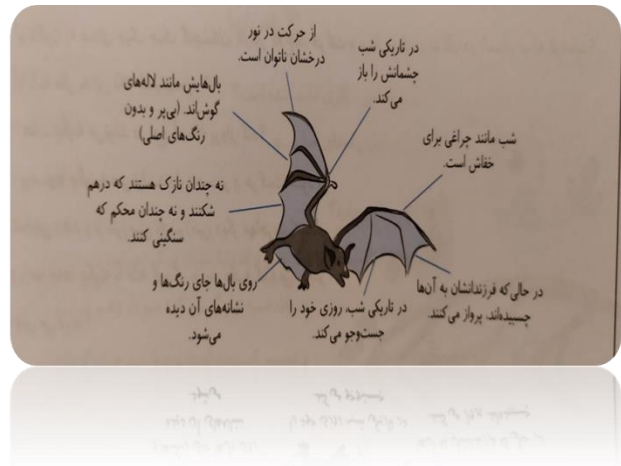 از حرکت در نور
درخشان ناتوان است.
در تاریکی شب
چشمانش را باز
می‌کند.
شب مانند چراغی برای
خفاش است.
بال‌هایش مانند لاله‌های
گوش‌اند. (بی‌پر و بدون
رنگ‌های اصلی)
نه چندان نازک هستند که درهم
شکنند و نه چندان محکم که
سنگینی کنند.
روی بال‌ها جای رنگ‌ها و
نشانه‌های آن دیده
می‌شود.
در تاریکی شب، روزی خود را
جست‌وجو می‌کند.
در حالی‌که فرزندانشان به آن‌ها
چسبیده‌اند، پرواز می‌کنند.